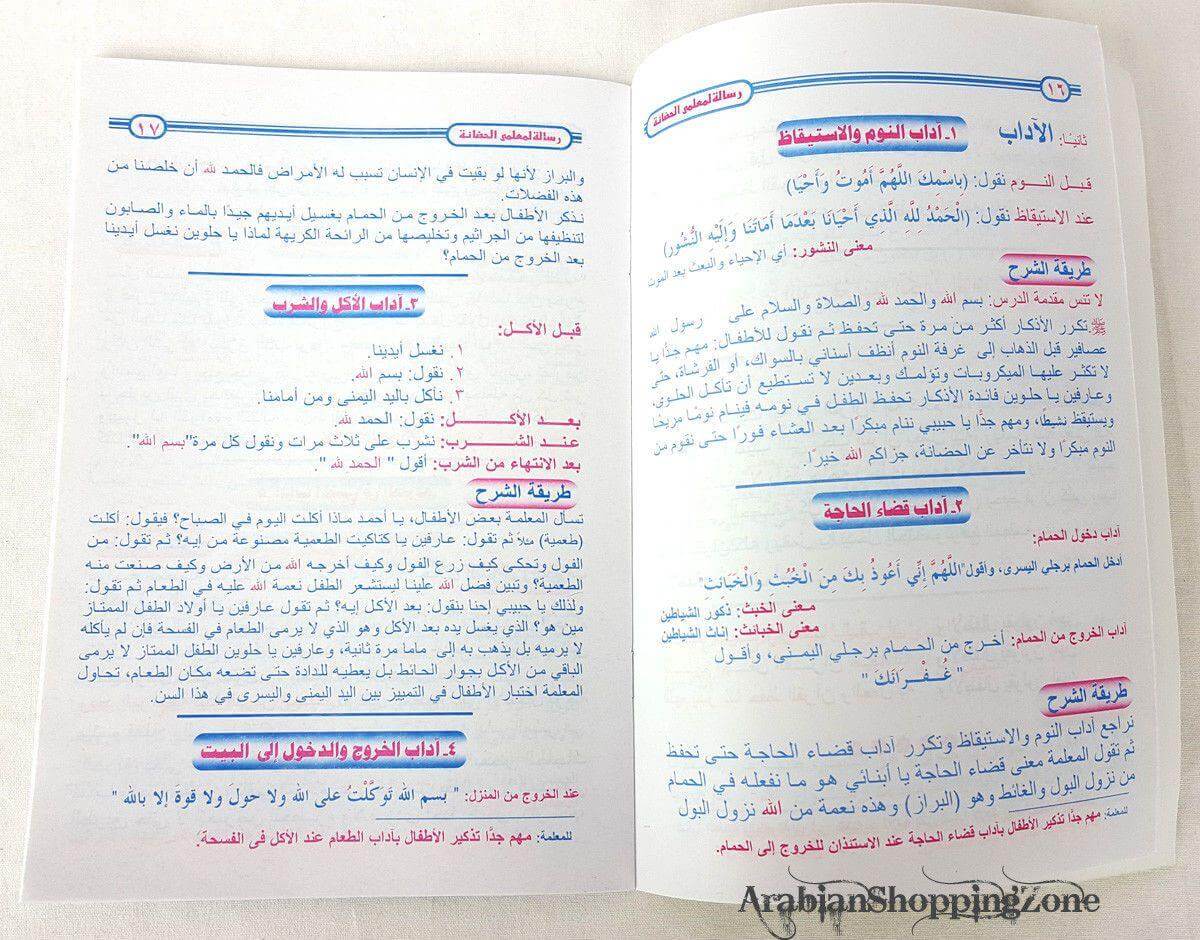 ١٦
رسالة لمعلمى الحضانة
ثانيًا: الآداب
١ـ آداب النوم والاستيقاظ
قبـل النــوم نقول: (بِاسْمِكَ اللَّهُمَّ أَمُوتُ وَأَحْيَا)
عند الاستيقاظ نقول: (الْحَمْدُ لِلَّهِ الَّذِي أَحْيَانَا بَعْدَمَا أَمَاتَنَا وَإِلَيْهِ النُّشُور)
معنى النشور: أي الإحياء والبعث بعد الموت
طريقة الشرح
لا تنس مقدمة الدرس: بسم الله والحمد لله والصلاة والسلام على رسول الله
ﷺ تكرر الأذكار أكثر من مرة حتى تحفظ ثم نقول للأطفال: مهم جدًّا يا
عصافير قبل الذهاب إلى غرفة النوم أنظف أسناني بالسواك، أو الفرشاة، حتى
لا تكثر عليها الميكروبات وتؤلمك وبعدين لا تستطيع أن تأكل الحلوى،
وعارفين يا حلوين فائدة الأذكار تحفظ الطفل في نومه فينام نومًا مريحًا
ويستيقظ نشيطًا، ومهم جدًّا يا حبيبي ننام مبكرًا بعد العشاء فورًا حتى نقوم من
النوم مبكرًا ولا نتأخر عن الحضانة، جزاكم الله خيرًا.
٢ـ آداب قضاء الحاجة
آداب دخول الحمام:
أدخل الحمام برجلي اليسرى، وأقول"اللَّهُمَّ إِنِّي أَعُوذُ بِكَ مِنَ الْخُبُثِ وَالْخَبَائِثِ"
معنى الخبث: ذكور الشياطين
معنى الخبائث: إناث الشياطين
آداب الخروج من الحمام: أخرج من الحمام برجلي اليمنى، وأقول
" غُـفْـرَانَكَ "
طريقة الشرح
نراجع آداب النوم والاستيقاظ وتكرر آداب قضاء الحاجة حتى تحفظ
ثم تقول المعلمة معنى قضاء الحاجة يا أبنائي هو ما نفعله في الحمام
من نزول البول والغائط وهو (البراز) وهذه نعمة من الله نزول البول
للمعلمة: مهم جدًّا تذكير الأطفال بآداب قضاء الحاجة عند الاستئذان للخروج إلى الحمام.
١٧
رسالة لمعلمى الحضانة
والبراز لأنها لو بقيت في الإنسان تسبب له الأمراض فالحمد لله أن خلصنا من
هذه الفضلات.
نذكر الأطفال بعد الخروج من الحمام بغسيل أيديهم جيدًا بالماء والصابون
لتنظيفها من الجراثيم وتخليصها من الرائحة الكريهة لماذا يا حلوين نغسل أيدينا
بعد الخروج من الحمام؟
٣ـ آداب الأكل والشرب
قبـل الأكـل:
١. نغسل أيدينا.
٢. نقول: بسم الله.
٣. نأكل باليد اليمنى ومن أمامنا.
بعـد الأكــــل: نقول: الحمد لله.
عنـد الشـــرب: نشرب على ثلاث مرات ونقول كل مرة"بسم الله".
بعد الانتهاء من الشرب: أقول " الحمد لله ".
طريقة الشرح
تسأل المعلمة بعض الأطفال، يا أحمد ماذا أكلت اليوم في الصباح؟ فيقول: أكلت
(طعمية) مثلاً ثم تقول: عارفين يا كتاكيت الطعمية مصنوعة من إيه؟ ثم تقول: من
الفول وتحكي كيف زرع الفول وكيف أخرجه الله من الأرض وكيف صنعت منه
الطعمية؟ وتبين فضل الله علينا ليستشعر الطفل نعمة الله عليه في الطعام ثم تقول:
ولذلك يا حبيبي إحنا بنقول: بعد الأكل إيه؟ ثم تقول عارفين يا أولاد الطفل الممتاز
مين هو؟ الذي يغسل يده بعد الأكل وهو الذي لا يرمى الطعام في الفسحة فإن لم يأكله
لا يرميه بل يذهب به إلى ماما مرة ثانية، وعارفين يا حلوين الطفل الممتاز لا يرمى
الباقي من الأكل بجوار الحائط بل يعطيه للدادة حتى تضعه مكان الطعام، تحاول
المعلمة اختبار الأطفال في التمييز بين اليد اليمنى واليسرى في هذا السن.
٤ـ آداب الخروج والدخول إلى البيت
عند الخروج من المنزل: " بسم الله تَوَكَّلْتُ على الله ولا حولَ ولا قوةَ إلا بالله "
للمعلمة: مهم جدًّا تذكير الأطفال بآداب الطعام عند الأكل فى الفسحة.
ArabianShoppingZone